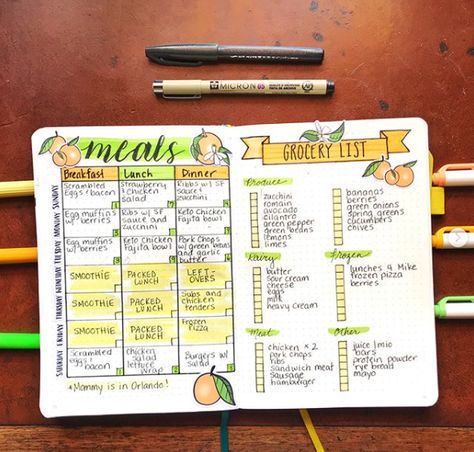 MICRON 05
meals
Breakfast Lunch Dinner
SUNDAY
Scrambled eggs & bacon
Strawberry & chicken salad
Ribbs w/ SF sauce & zucchini
MONDAY
Egg muffins w/ berries
Ribs w/ SF sauce and zucchini
Keto Chicken Fajita bowl
TUESDAY
Egg muffins w/ berries
Keto Chicken Fajita bowl
Pork Chops w/ green beans and garlic butter
WEDNESDAY
SMOOTHIE
PACKED LUNCH
LEFT-OVERS
THURSDAY
SMOOTHIE
PACKED LUNCH
Subs and chicken tenders
FRIDAY
SMOOTHIE
PACKED LUNCH
Frozen Pizza
SATURDAY
Scrambled eggs & bacon
Chicken Salad lettuce wrap
Burgers w/ salad
*Mommy is in Orlando!
GROCERY LIST
Produce
zucchini
romain
avocado
cilantro
green pepper
green beans
lemons
limes
bananas
berries
green onions
spring greens
cucumbers
chives
Dairy
butter
sour cream
cheese
eggs
milk
heavy cream
Frozen
lunches 4 Mike
frozen pizza
berries
Meat
chicken x 2
pork chops
ribs
sandwich meat
sausage
hamburger
Other
juice/mio
bars
protein powder
rye bread
mayo